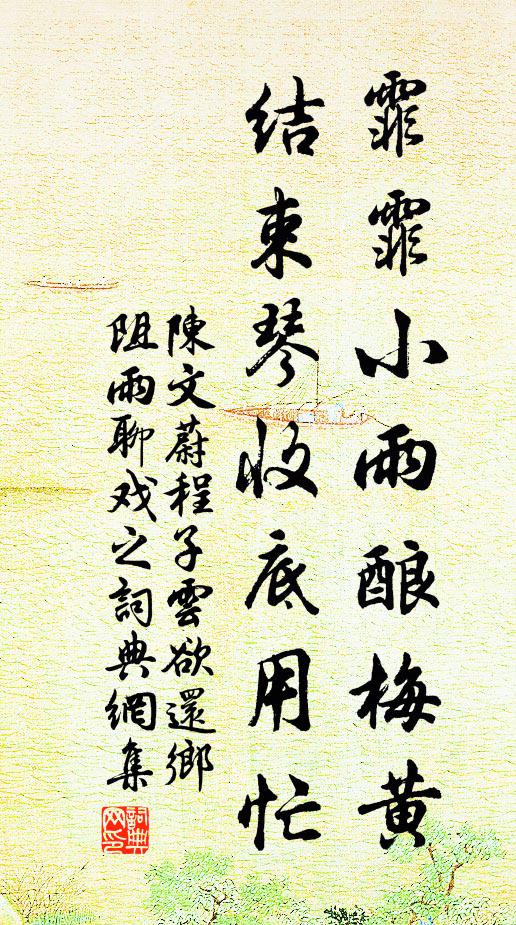 霏霏小雨酿梅黄
结束琴收底用忙
陳文蔚程子雲欲還鄉
阻雨聊戏之詞典網集
詞典网印